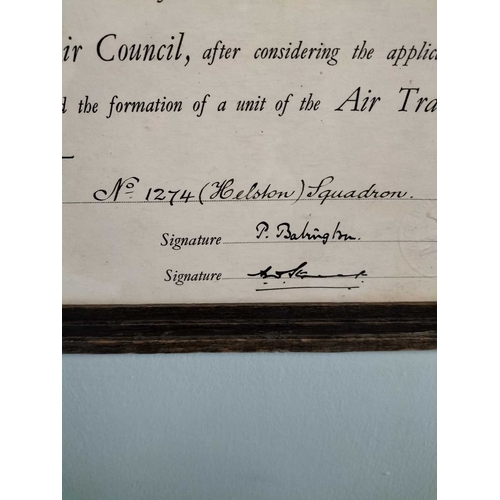 ir Council, after considering the applic
d the formation of a unit of the Air Tra
No. 1274 (Helston) Squadron.
Signature P. Babington.
Signature